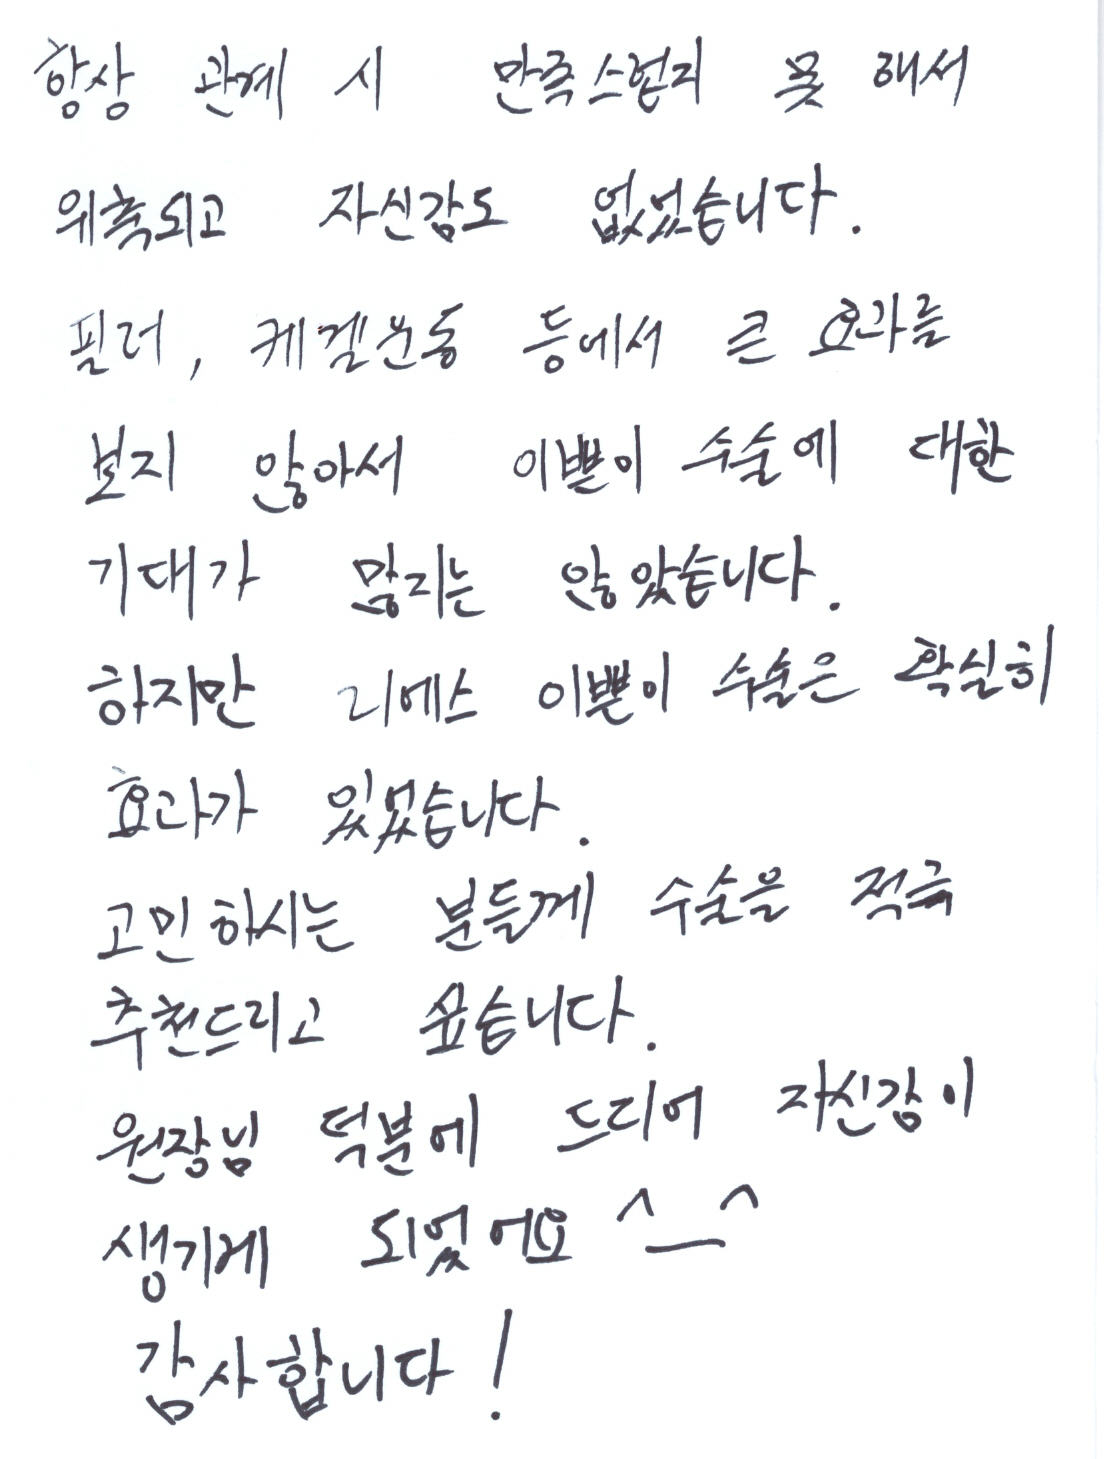 항상 관계 시 만족스럽지 못 해서
위축되고 자신감도 없었습니다.
필러, 케겔운동 등에서 큰 효과를
보지 않아서 이쁜이 수술에 대한
기대가 많지는 않았습니다.
하지만 리에스 이쁜이 수술은 확실히
효과가 있었습니다.
고민하시는 분들께 수술을 적극
추천드리고 싶습니다.
원장님 덕분에 드디어 자신감이
생기게 되었어요 ^__^
감사합니다!